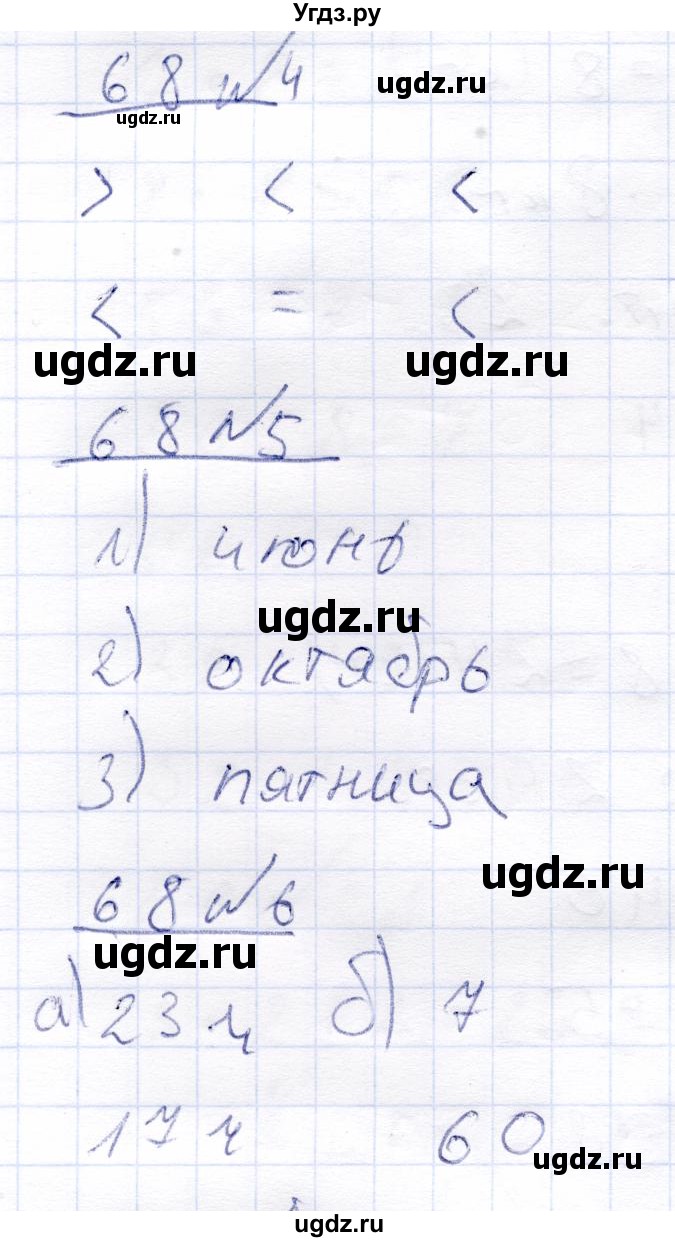 Угдз.ру
68 №4
ugdz.ru
ugdz.ru
> < <
< = <
ugdz.ru ugdz.ru
68 №5
1) июнь
ugdz.ru
2) октябрь
3) пятница
ugdz.ru
68 №6
ugdz.ru
а) 23 ч б) 7
17 ч 60
ugdz.ru
ugdz.ru